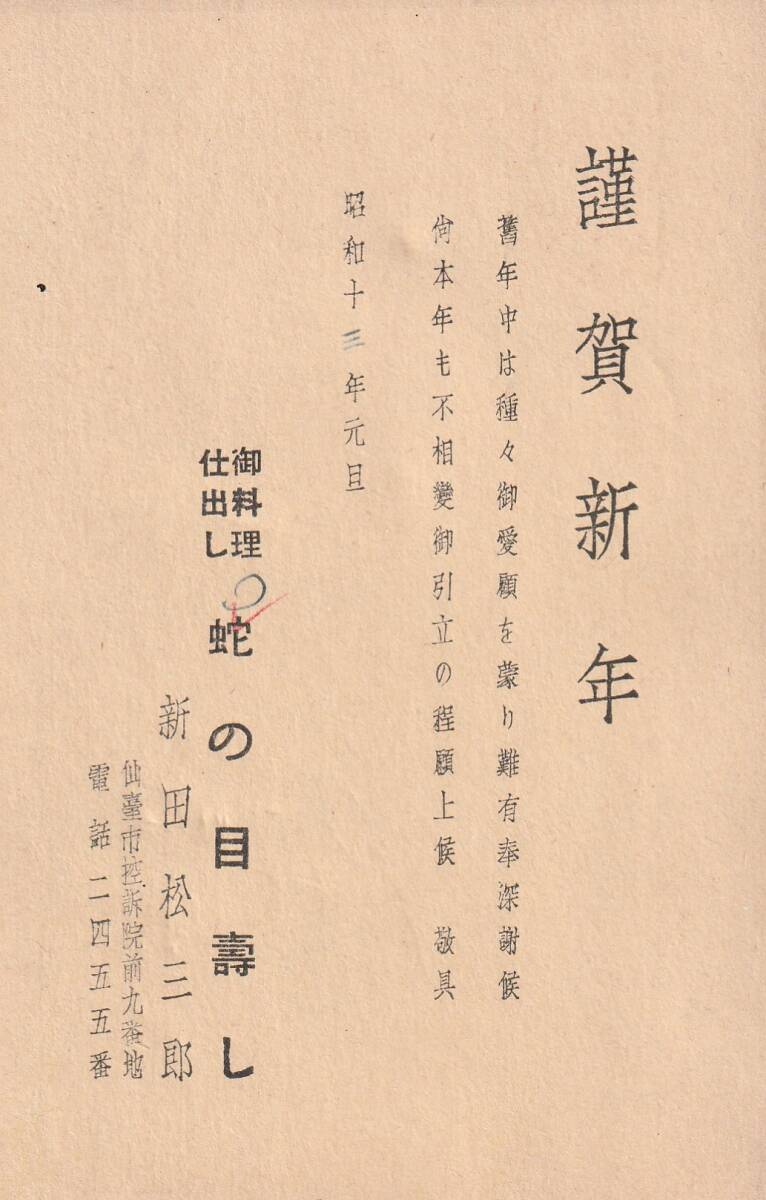 謹賀新年
舊年中は種々御愛顧を蒙り難有奉深謝候
尙本年も不相變御引立の程願上候 敬具
昭和十三年元旦
御料理
仕出し
蛇の目壽し
新田松三郎
仙臺市控訴院前九番地
電話二四五五番